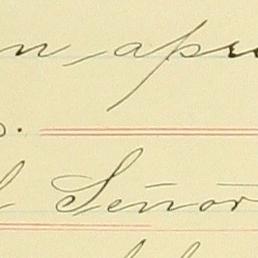 n apre
s.
l Señor